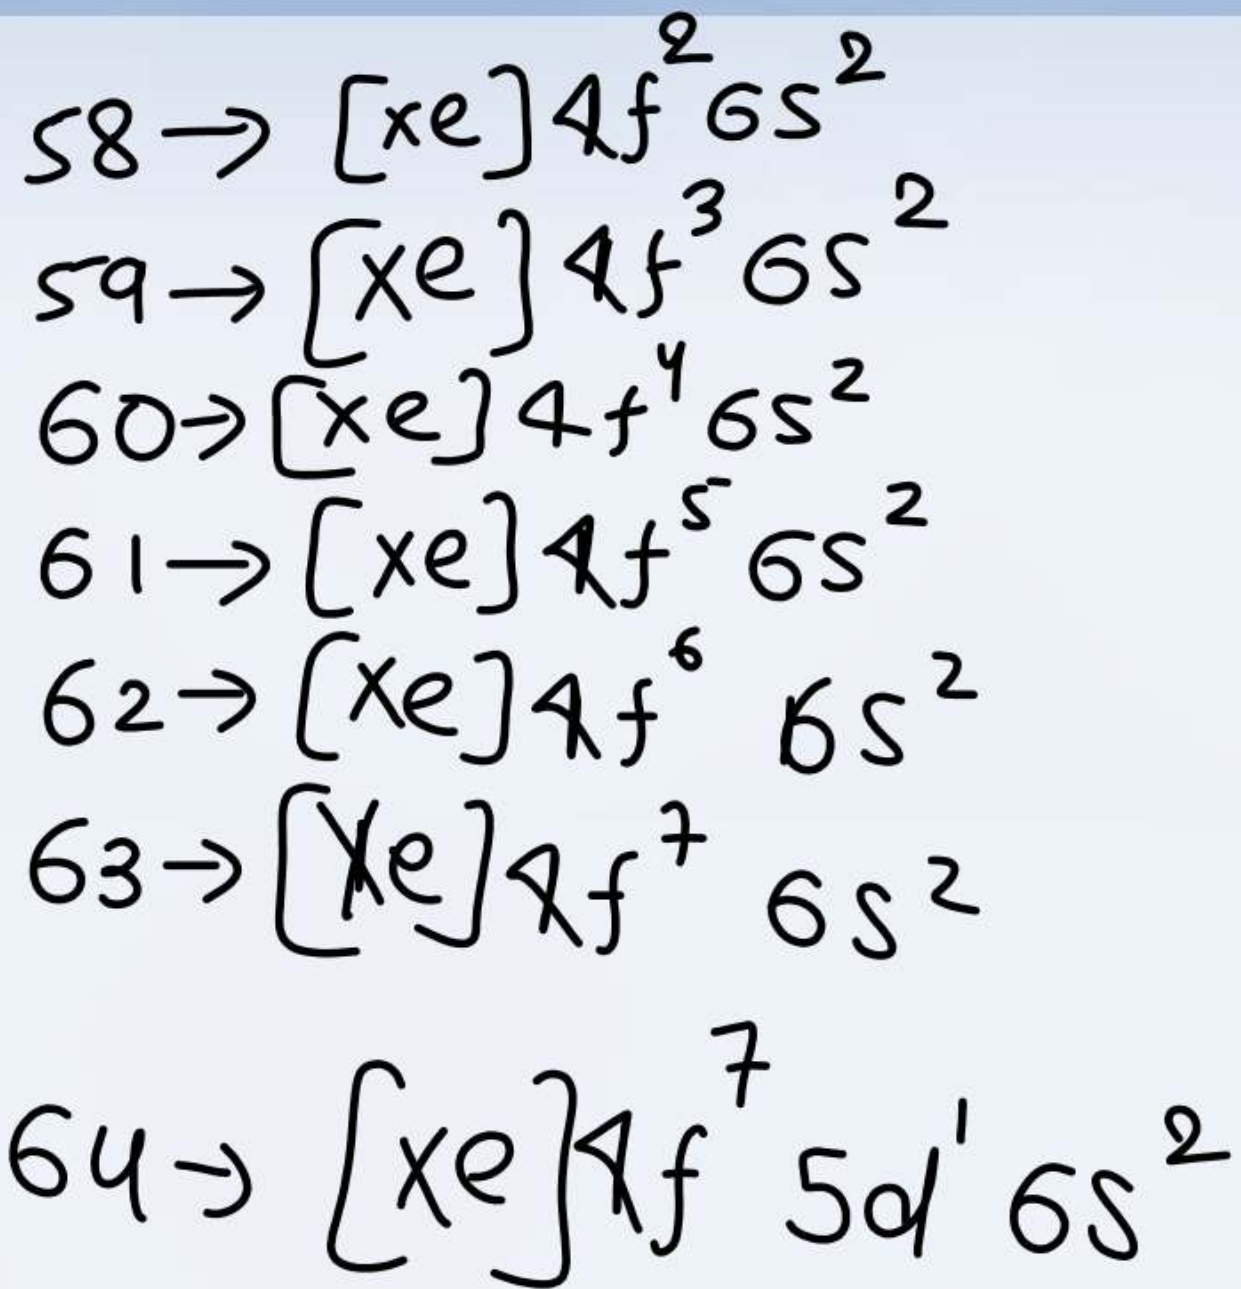 58→ [xe]4f² 6s²
59→ [xe]4f³ 6s²
60→ [xe]4f⁴ 6s²
61→ [xe]4f⁵ 6s²
62→ [xe]4f⁶ 6s²
63→ [Xe]4f⁷ 6s²
64→ [xe]4f⁷ 5d¹ 6s²